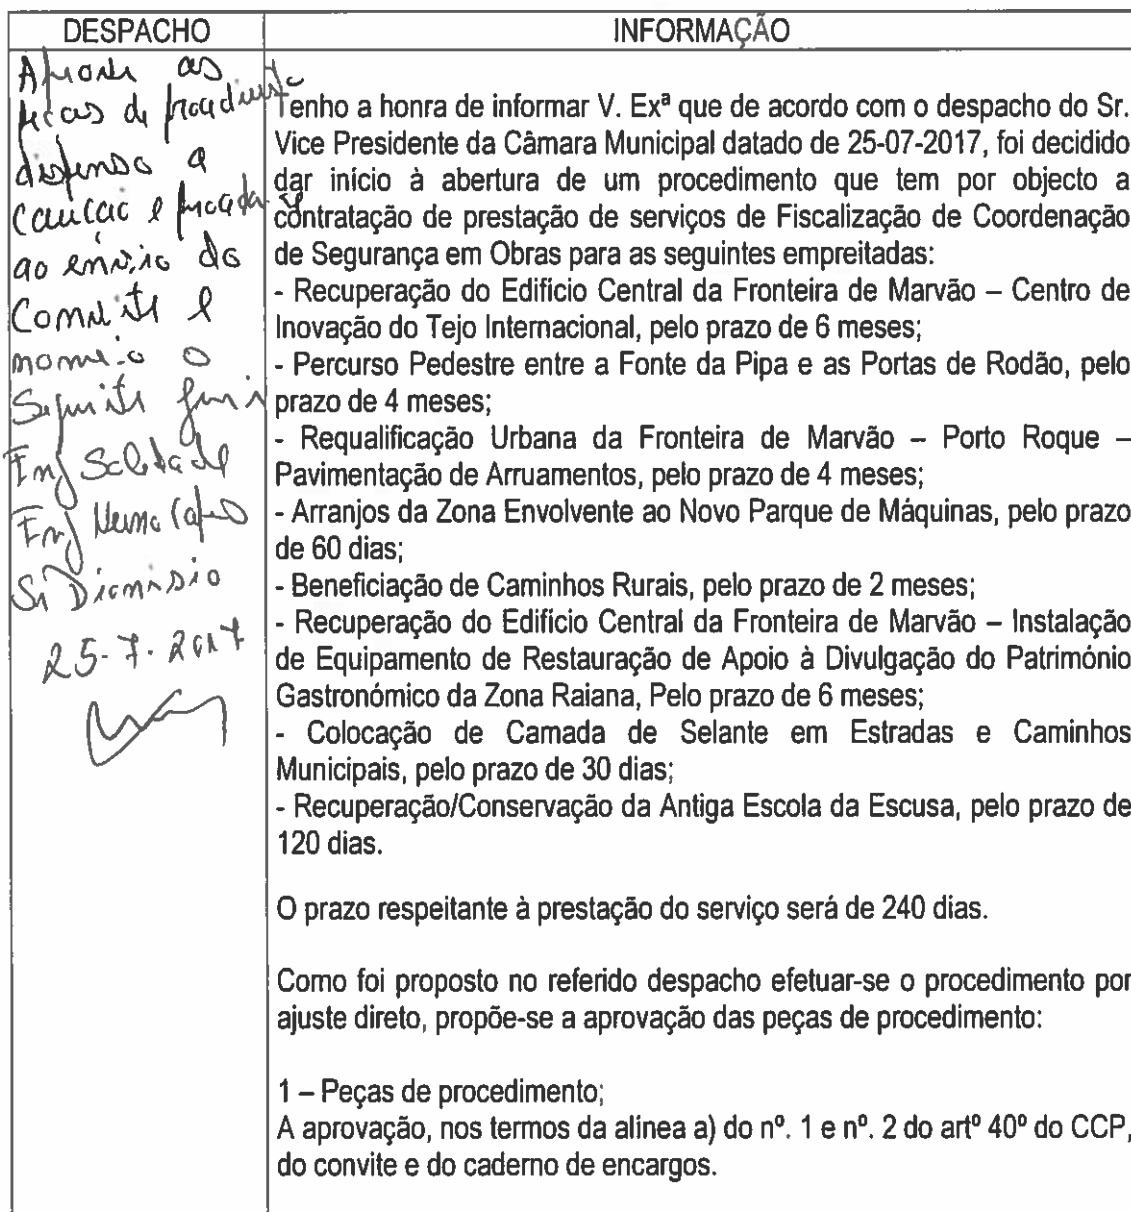 DESPACHO
INFORMAÇÃO
Aprovo as
peças de procedimento
dispenso a
caução e proceda-se
ao envio do
Convite e
nomeio o
Seguinte juri
Eng Soledade
Eng Nuno
Sr Dionisio
25-7-2017
Tenho a honra de informar V. Exª que de acordo com o despacho do Sr.
Vice Presidente da Câmara Municipal datado de 25-07-2017, foi decidido
dar início à abertura de um procedimento que tem por objecto a
contratação de prestação de serviços de Fiscalização de Coordenação
de Segurança em Obras para as seguintes empreitadas:
- Recuperação do Edifício Central da Fronteira de Marvão – Centro de
Inovação do Tejo Internacional, pelo prazo de 6 meses;
- Percurso Pedestre entre a Fonte da Pipa e as Portas de Rodão, pelo
prazo de 4 meses;
- Requalificação Urbana da Fronteira de Marvão – Porto Roque –
Pavimentação de Arruamentos, pelo prazo de 4 meses;
- Arranjos da Zona Envolvente ao Novo Parque de Máquinas, pelo prazo
de 60 dias;
- Beneficiação de Caminhos Rurais, pelo prazo de 2 meses;
- Recuperação do Edifício Central da Fronteira de Marvão – Instalação
de Equipamento de Restauração de Apoio à Divulgação do Património
Gastronómico da Zona Raiana, Pelo prazo de 6 meses;
- Colocação de Camada de Selante em Estradas e Caminhos
Municipais, pelo prazo de 30 dias;
- Recuperação/Conservação da Antiga Escola da Escusa, pelo prazo de
120 dias.
O prazo respeitante à prestação do serviço será de 240 dias.
Como foi proposto no referido despacho efetuar-se o procedimento por
ajuste direto, propõe-se a aprovação das peças de procedimento:
1 – Peças de procedimento;
A aprovação, nos termos da alinea a) do nº. 1 e nº. 2 do artº 40º do CCP,
do convite e do caderno de encargos.